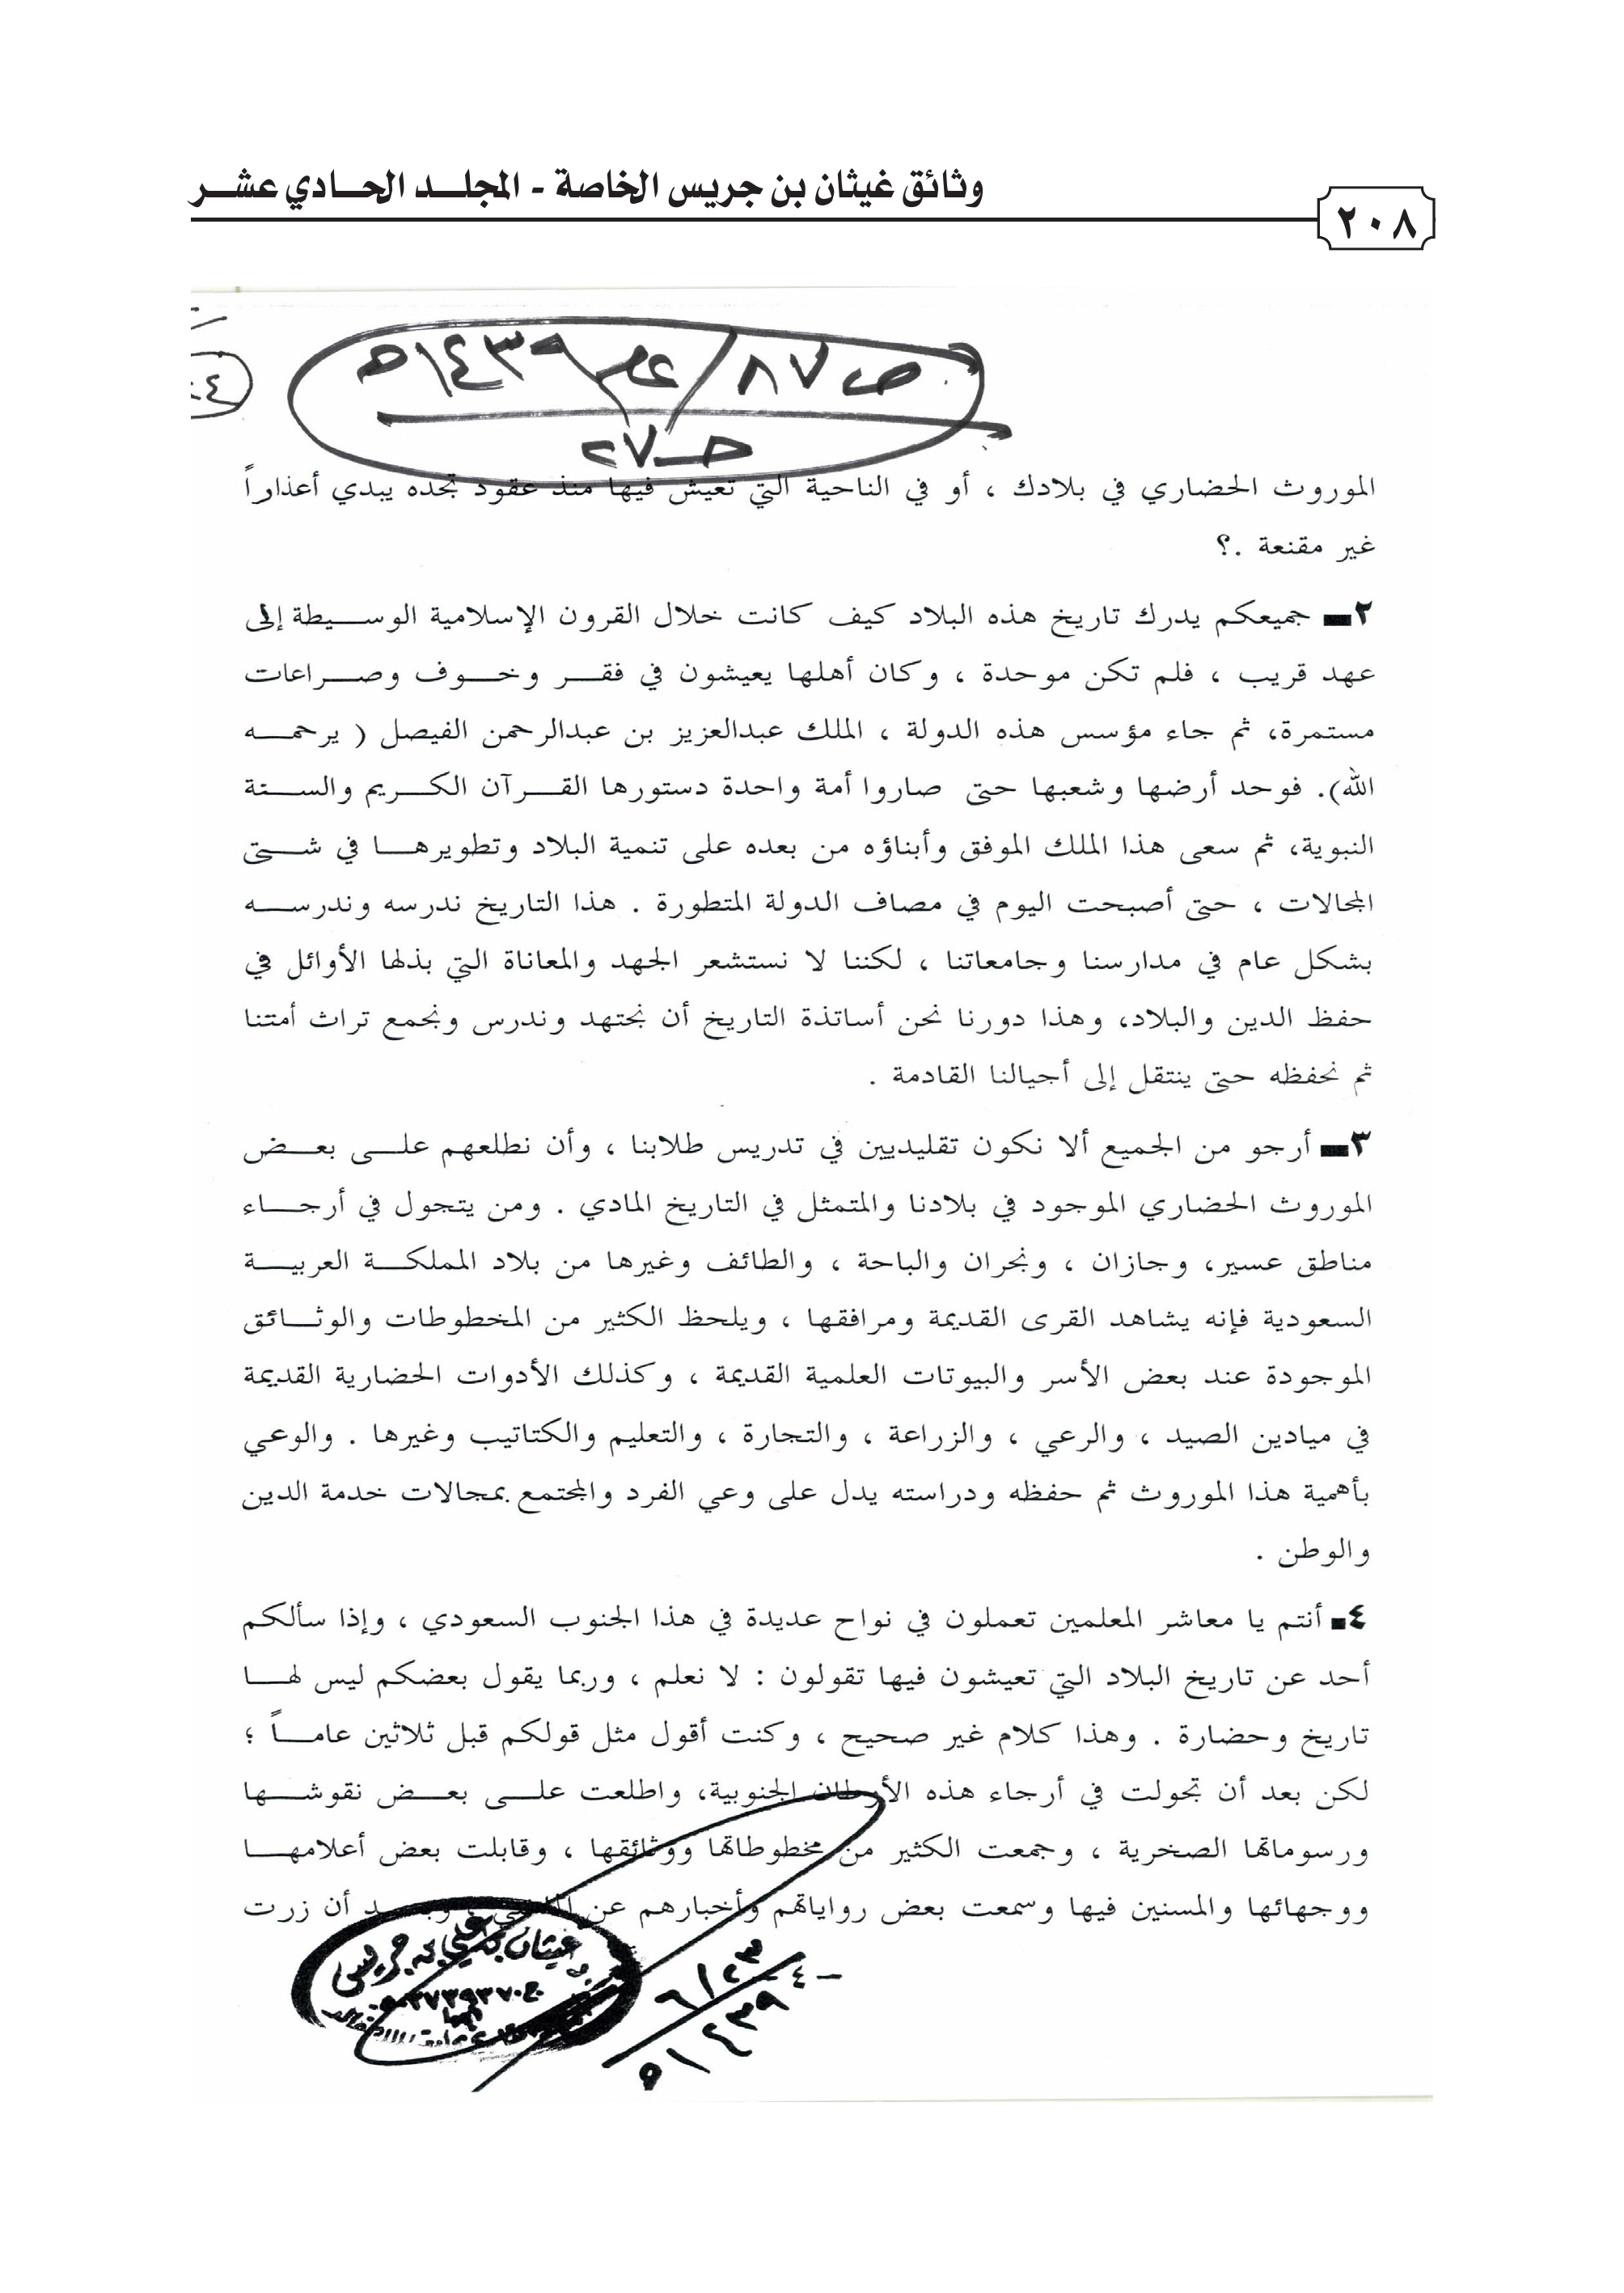 وثائق غيثان بن جريس الخاصة - المجلـد الحـادي عشـر
٢٠٨
ص ٨٧ / عام ١٤٣٩هـ
جـ ٢٧
الموروث الحضاري في بلادك ، أو في الناحية التي تعيش فيها منذ عقود تجده يبدي أعذاراً
غير مقنعة .؟
٢ـ جميعكم يدرك تاريخ هذه البلاد كيف كانت خلال القرون الإسلامية الوسـيطة إلى
عهد قريب ، فلم تكن موحدة ، وكان أهلها يعيشون في فقـر وخـوف وصـراعات
مستمرة، ثم جاء مؤسس هذه الدولة ، الملك عبدالعزيز بن عبدالرحمن الفيصل ( يرحمـه
الله). فوحد أرضها وشعبها حتى صاروا أمة واحدة دستورها القـرآن الكـريم والسـنة
النبوية، ثم سعى هذا الملك الموفق وأبناؤه من بعده على تنمية البلاد وتطويرهـا في شـتى
المجالات ، حتى أصبحت اليوم في مصاف الدولة المتطورة . هذا التاريخ ندرسه وندرسـه
بشكل عام في مدارسنا وجامعاتنا ، لكننا لا نستشعر الجهد والمعاناة التي بذلها الأوائل في
حفظ الدين والبلاد، وهذا دورنا نحن أساتذة التاريخ أن نجتهد وندرس ونجمع تراث أمتنا
ثم نحفظه حتى ينتقل إلى أجيالنا القادمة .
٣ـ أرجو من الجميع ألا نكون تقليديين في تدريس طلابنا ، وأن نطلعهم علـى بعـض
الموروث الحضاري الموجود في بلادنا والمتمثل في التاريخ المادي . ومن يتجول في أرجـاء
مناطق عسير، وجازان ، ونجران والباحة ، والطائف وغيرها من بلاد المملكـة العربيـة
السعودية فإنه يشاهد القرى القديمة ومرافقها ، ويلحظ الكثير من المخطوطات والوثـائق
الموجودة عند بعض الأسر والبيوتات العلمية القديمة ، وكذلك الأدوات الحضارية القديمة
في ميادين الصيد ، والرعي ، والزراعة ، والتجارة ، والتعليم والكتاتيب وغيرها . والوعي
بأهمية هذا الموروث ثم حفظه ودراسته يدل على وعي الفرد والمجتمع بمجالات خدمة الدين
والوطن .
٤ـ أنتم يا معاشر المعلمين تعملون في نواح عديدة في هذا الجنوب السعودي ، وإذا سألكم
أحد عن تاريخ البلاد التي تعيشون فيها تقولون : لا نعلم ، وربما يقول بعضكم ليس لهـا
تاريخ وحضارة . وهذا كلام غير صحيح ، وكنت أقول مثل قولكم قبل ثلاثين عامـاً ؛
لكن بعد أن تجولت في أرجاء هذه الأوطان الجنوبية، واطلعت علـى بعـض نقوشـها
ورسوماتها الصخرية ، وجمعت الكثير من مخطوطاتها ووثائقها ، وقابلت بعض أعلامهـا
ووجهائها والمسنين فيها وسمعت بعض رواياتهم وأخبارهم عن الماضي ، وبعـد أن زرت
غيثان بن علي بن جريس
- ٤ -
٦/٢٣
١٤٣٩هـ